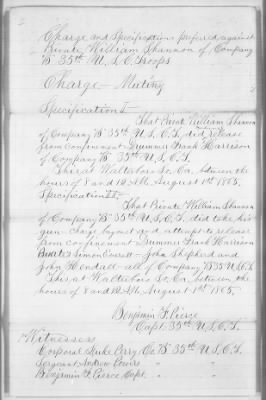 Charge and Specifications preferred against
Private William Shannon of Company
"B" 35th U.S.C. Troops
Charge — Mutiny
Specification I—
That Private William Shannon
of Company "B" 35th U.S.C.T. did release
from confinement Drummer Frank Harrison
of Company "B" 35th U.S.C.T.
This at Walterboro So. Ca. between the
hours of 8 and 12 AM. August 1st 1865.
Specification II—
That Private William Shannon
of Company "B" 35th U.S.C.T. did take his
gun charge bayonet and attempt to release
from confinement Drummer Frank Harrison
Simon Everett — John Shepherd and
John Kendall — all of Company "B" 35 U.S.C.T.
This at Walterboro So. Ca. between the
hours of 8 and 12 AM. August 1st 1865.
Benjamin F. Pierce
Capt. 35th U.S.C.T.
Witnesses
Corporal Luke Perry Co. "B" 35th U.S.C.T.
Sergeant Andrew " "
Benjamin F. Pierce Capt. " "